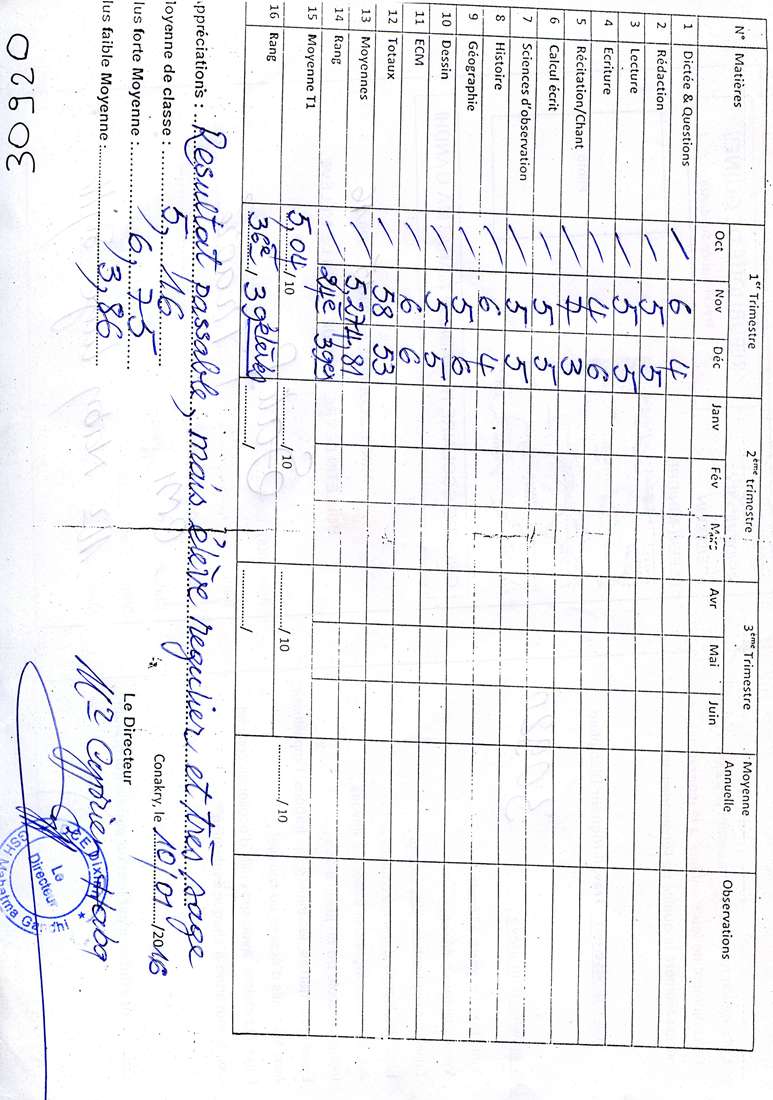 N° Matières 1er Trimestre 2ème trimestre 3ème Trimestre Moyenne Annuelle Observations
Oct Nov Déc Janv Fév Mars Avr Mai Juin
1 Dictée & Questions / 6 4
2 Rédaction / 5 5
3 Lecture / 5 5
4 Ecriture / 4 6
5 Récitation/Chant / 7 3
6 Calcul écrit / 5 5
7 Sciences d'observation / 5 5
8 Histoire / 6 4
9 Géographie / 5 6
10 Dessin / 5 5
11 ECM / 6 6
12 Totaux / 58 53
13 Moyennes / 5,27 4,81
14 Rang / 24e 39ex
15 Moyenne T1 5,04 / 10 ........../ 10 ........../ 10 ........../ 10
16 Rang 36e / 39 élèves ........../ ........../
ppréciations : Resultat passable, mais élève regulier et très sage
oyenne de classe : 5,16
lus forte Moyenne : 6,75
lus faible Moyenne : 3,86
Conakry, le 10/01/2016
Le Directeur
Mr Cyprien Haba
Le Directeur
Mahatma Gandhi
02520